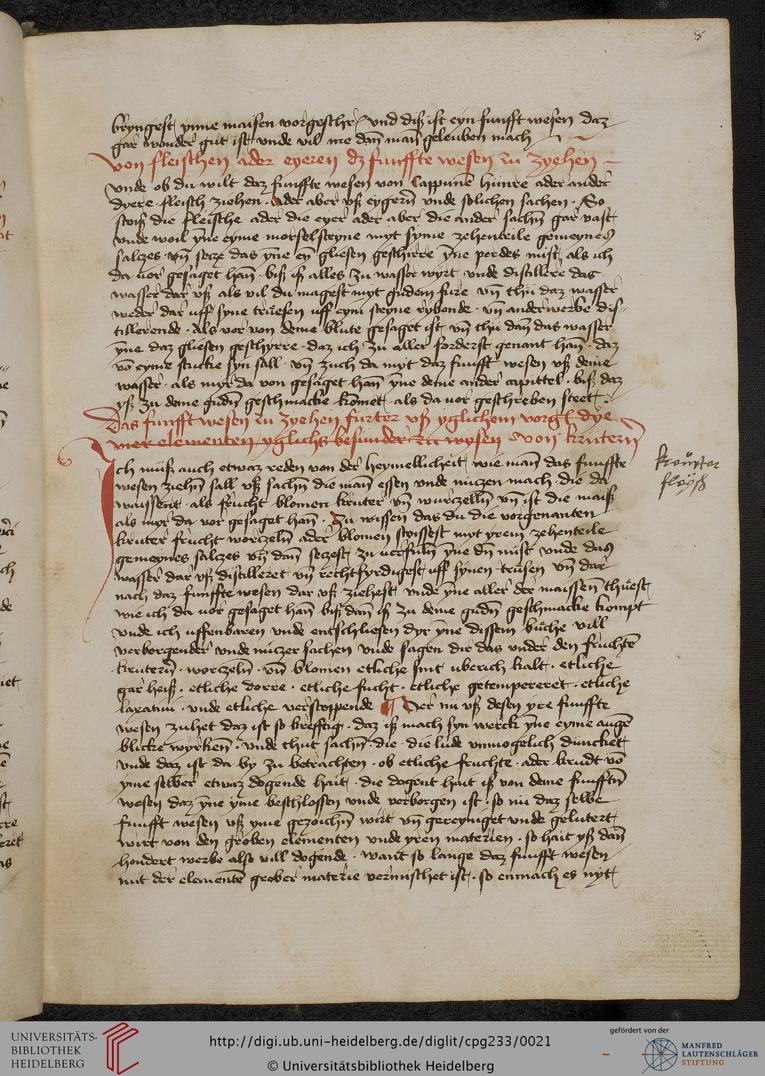 8
bryngest ynne maisen vorgeschr vnd diß ist eyn funfft wesen daz
gar wonder gut ist vnde vil me dan man geleuben mach
von fleischen ader eyeren dz funffte wesen zu zyehen
Vnde ob du wilt daz funffte wesen von cappune hunre ader ander
dyere fleisch ziehen. Ader aber vß eygern vnde solichen sachen. So
stoiß die fleische ader die eyer ader aber die ander sachn gar vast
vnde woil yne eyme morselsteyne myt syme zehenteile gemeynes
salczes vn secze das yne en gliesen geschirre yne perdes mist als ich
da vor gesaget han biß iß alles zu wasser wyrt vnde distillere daz
wasser dar vß als vil du magest myt gudem fure vn thu daz wasser
weder dar vff syne truesen vff eym steyne rybende vn anderwerbe dis-
tillerende. Als vor von deme blute gesaget ist vn thu dan das wasser
yne daz gliesen geschyrre. daz ich zu aller forderst genant han. daz
vo eyme stucke syn sall vn zuch da myt daz funfft wesen vß deme
wasser. als myr da von gesaget han yne deme ander capittel. biß daz
yß zu deme gudn geschmacke komet als da vor geschreben steet.
Das funfft wesen zu zyehen furter vß yglichem vorgl dye
vier elementen yglichs besunder zu wysen von krutern
Ich muß auch etwaz reden von der heymellicheit wie man das funffte
wesen ziehn sall vß sachn die man essen vnde nuczen mach die da
waissent als frucht blomen kruter vn wurczelln vn ist die maiß
als myr da vor gesaget han. Zu wissen das du die vorgenanten
kruter frucht worczeln ader blomen stoissest myt yrem zehenteile
gemeynes salczes vn dan seczest zu verfuln yne dn mist vnde das
wasser dar vß distilleret vn rechtfyrdigest vff synen trusen vn dar
nach daz funffte wesen dar vß ziehest vnde yne aller der maissen thuest
wie ich da vor gesaget han biß dan iß zu deme gudn geschmacke kompt
vnde ich uffenbaren vnde entschliesen dyr yne dissem buche vill
verborgender vnde nuczer sachen vnde sagen dir das vnder den fruchte
krutern. worczeln. vn blomen etliche sint uberich kalt. etliche
gar heiß. etliche dorre. etliche fucht. etliche getempereret. etliche
laxatiui. vnde etliche verstoppende Wer nu vß desen yre funffte
wesen zuhet daz ist so krefftig. daz iß mach syn werck yne eyme auge
blicke wyrken. vnde thut sachn die die lude vnmogelich duncket
vnde daz ist da by zu betrachten. ob etliche fruchte. ader krudt vo
yme selber etwaz dogende hait. die dogent hait iß von deme funfftn
wesen daz yne yme beschlossen vnde verborgen ist. so nu daz selbe
funfft wesen vß yme gezoichn wirt vn gereyniget vnde gelutert
wirt von den groben elementen vnde yren materien. so hait yß dan
hondert werbe also vill dogende. want so lange daz funfft wesen
mit der elemente grober materie vermischet ist. so enmach es nyt
kreutter
UNIVERSITÄTS-
BIBLIOTHEK
HEIDELBERG
http://digi.ub.uni-heidelberg.de/diglit/cpg233/0021
© Universitätsbibliothek Heidelberg
gefördert von der
MANFRED
LAUTENSCHLÄGER
STIFTUNG